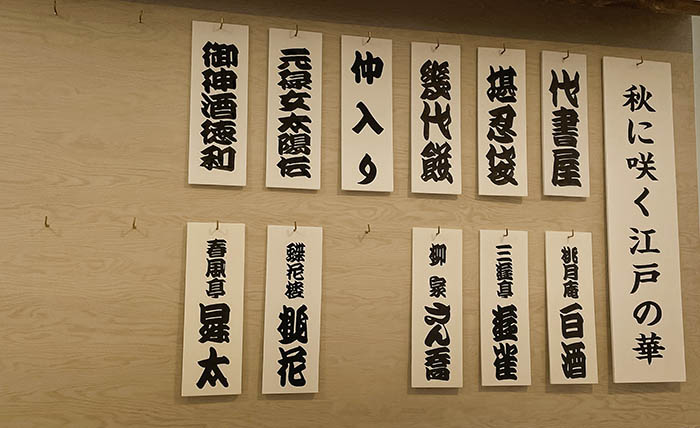 秋に咲く江戸の華
代書屋
堪忍袋
幾代餅
仲入り
元禄女太陽伝
御神酒徳利
桃月庵 白酒
三遊亭 遊雀
柳家 さん喬
蝶花楼 桃花
春風亭 昇太